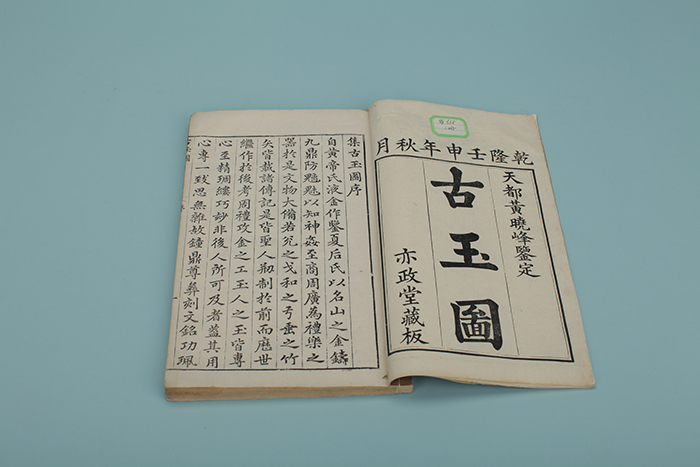 乾隆壬申年秋月
天都黃曉峰鑒定
古玉圖
亦政堂藏板
集古玉圖序
自黃帝氏液金作鑒夏后氏以名山之金鑄
九鼎防魑魅以知神姦至商周廣為禮樂之
器於是文物大備若兊之戈和之弓垂之竹
矢皆載諸傳記是皆聖人刱制於前而歷世
繼作於後考周禮攻金之工玉人之玉皆專
心至精琱縷巧妙非後人所可及者蓋其用
心專一致思無雜故鐘鼎尊彝刻文銘功珮